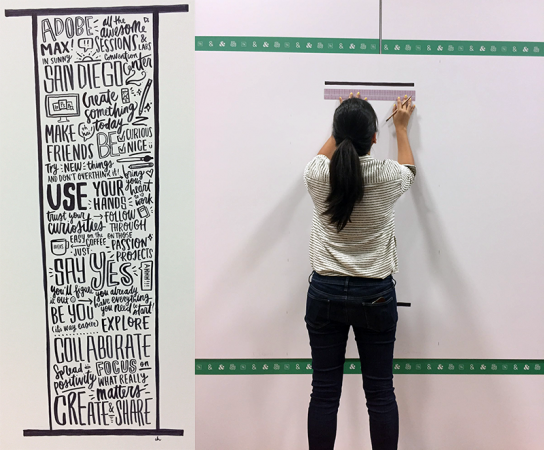 ADOBE all the
MAX! awesome
SESSIONS & LABS
IN SUNNY
SAN DIEGO
convention
Center
Create
something
today
MAKE
FRIENDS
BE
CURIOUS
NICE
Try NEW things
AND DON'T OVERTHINK it!
bring
your
heart
to
work
USE YOUR
HANDS
trust your
curiosities
→ FOLLOW
THROUGH
EASY on the
COFFEE
ON THOSE
PASSION
PROJECTS
JUST
SAY YES
you'll figure
it out
you already
have everything
you need to
start!
BE YOU
(it's way easier)
EXPLORE
COLLABORATE
Spread
positivity
FOCUS on
WHAT REALLY
matters
CREATE & SHARE